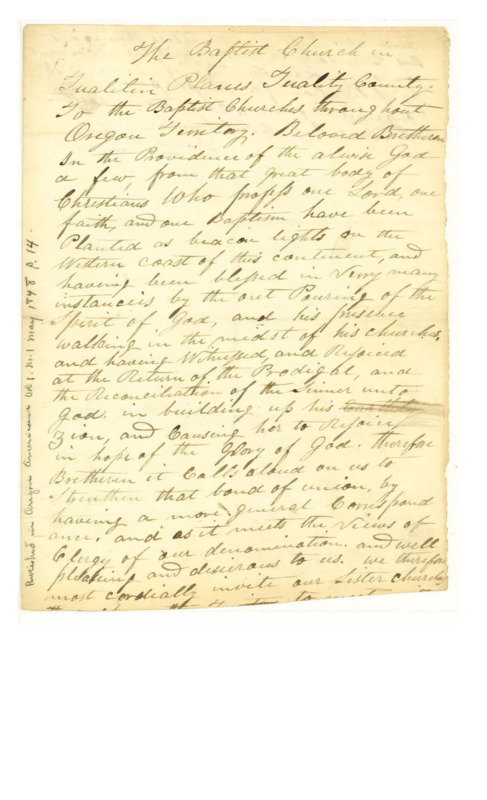 The Baptist Church in
Tualitin Planes Tuality County.
To the Baptist Churches throughout
Oregon Territory. Beloved Bretheren
In the Providence of the alwise God
a few, from that great body of
Christians Who profess one Lord, one
faith, and one Baptism have been
Planted as beacon lights on the
Western coast of this continent, and
having been blessed in very many
instances by the out Pouring of the
Spirit of God, and his presence
walking in the midst of his churches,
and having Witnessed, and Rejoiced
at the Return of the Prodigal, and
the Reconciliation of the Sinner unto
God. in building up his
Zion, and Causing her to Rejoice
in hope of the Glory of God. therefore
Bretheren it Calls aloud on us to
Strenthen that bond of union, by
having a more general Correspond
ance, and as it meets the views of
Clergy of our denomination. and well
pleasing and desirous to us. we therefore
most cordially invite our Sister churches
to meet
Published in Oregon American Vol 1. No. 1 May 1848 p. 14.